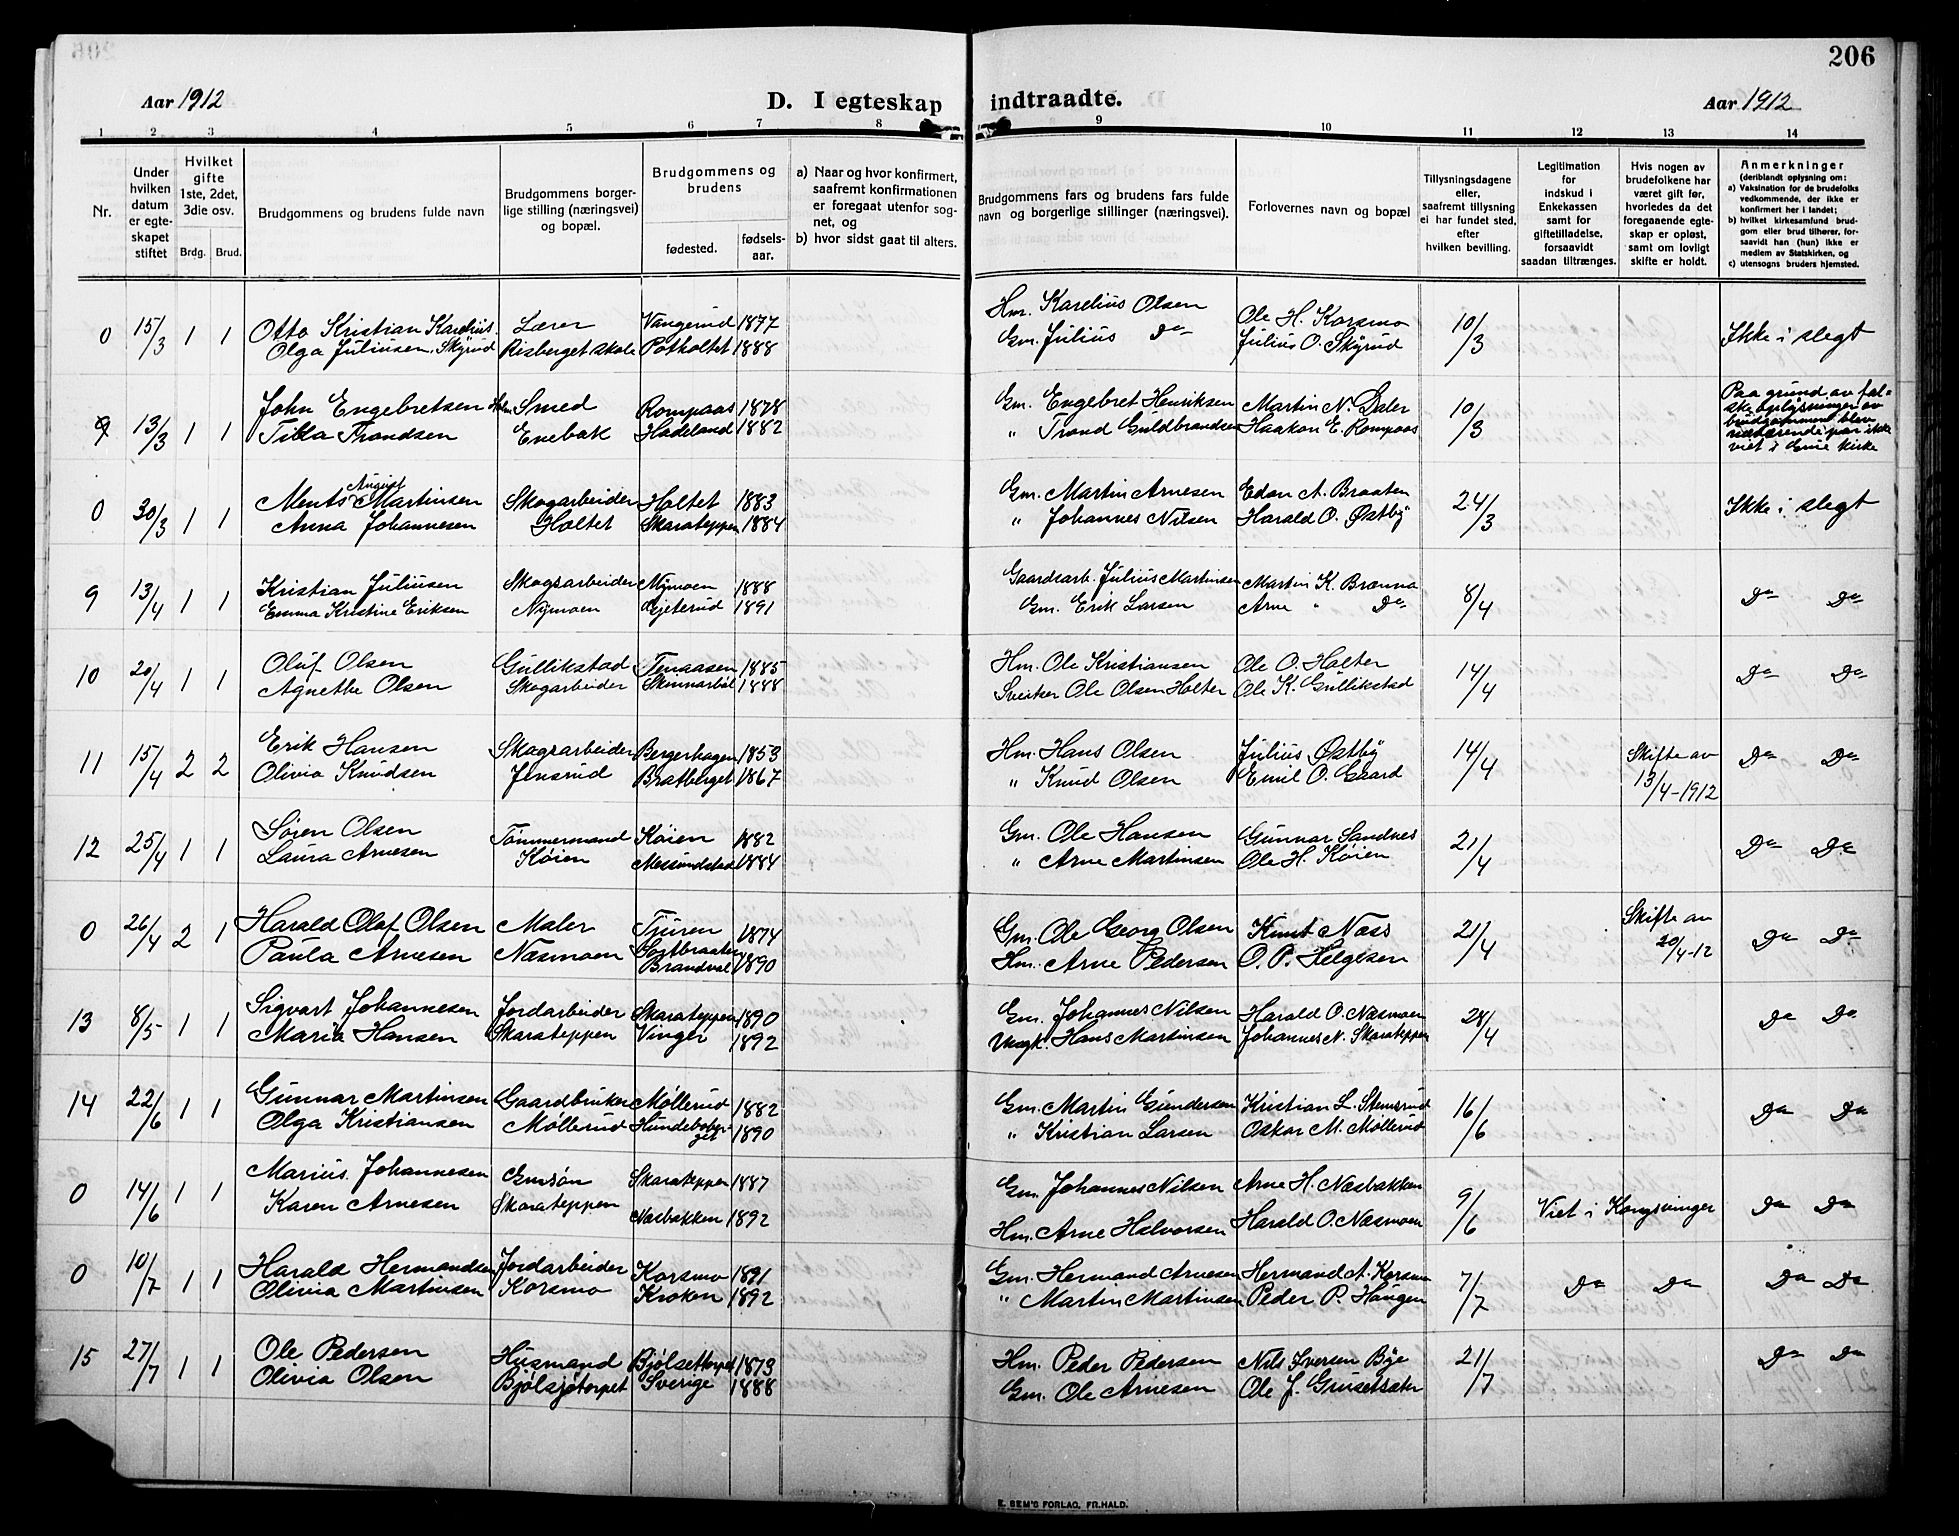 206
Aar 1912
D. I egteskap indtraadte.
Aar 1912
1 2 3 4 5 6 7 8 9 10 11 12 13 14
Nr.
Under hvilken datum er egteskapet stiftet
Hvilket gifte 1ste, 2det, 3die osv.
Brdg. Brud.
Brudgommens og brudens fulde navn
Brudgommens borgerlige stilling (næringsvei) og bopæl.
Brudgommens og brudens
fødested.
fødselsaar.
a) Naar og hvor konfirmert, saafremt konfirmationen er foregaat utenfor sognet, og
b) hvor sidst gaat til alters.
Brudgommens fars og brudens fars fulde navn og borgerlige stillinger (næringsvei).
Forlovernes navn og bopæl
Tillysningsdagene eller, saafremt tillysning ei har fundet sted, efter hvilken bevilling.
Legitimation for indskud i Enkekassen samt for giftetilladelse, forsaavidt saadan tiltrænges.
Hvis nogen av brudefolkene har været gift før, hvorledes da det foregaaende egteskap er opløst, samt om lovligt skifte er holdt.
Anmerkninger (deriblandt oplysning om: a) Vaksination for de brudefolks vedkommende, der ikke er konfirmert her i landet; b) hvilket kirkesamfund brudgom eller brud tilhører, forsaavidt han (hun) ikke er medlem av Statskirken, og c) utensogns bruders hjemsted.
0 15/3 1 1 Otto Kristian Karelius. Lærer Vangerud 1877 Hm. Karelius Olsen Ole H. Korsmo 10/3 Ikke i slegt
Olga Juliusen, Skyrud Risberget skole Potholtet 1888 Gm. Julius Do Julius O. Skyrud
9 13/3 1 1 John Engebretsen Smed Rompaas 1878 Gm. Engebret Henriksen Martin N. Daler 10/3 Paa grund av falske oplysninger av brudgommen blev nærværende par ikke viet i Eine kirke
Tilla Trondsen Enebak Hadeland 1882 " Trond Guldbrandsen Haakon E. Rompaas
0 30/3 1 1 Ments August Martinsen Skogarbeider Holtet 1883 Gm. Martin Arnesen Edon A. Braaten 24/3 Ikke i slegt
Anna Johannesen Holtet Skarateppen 1884 " Johannes Nilsen Harald O. Østby
9 13/4 1 1 Kristian Juliusen Skogsarbeider Nymoen 1888 Gaardsarb. Julius Martinsen Martin K. Brænna 8/4 Do Do
Emma Kristine Eriksen Nymoen Gjeterud 1891 Gm. Erik Larsen Arne " Do
10 20/4 1 1 Oluf Olsen Gullikstad Tenaasen 1885 Hm. Ole Kristiansen Ole O. Holter 14/4 Do Do
Agnethe Olsen Skogarbeider Skinnarbøl 1888 Sveiker Ole Olsen Holter Ole K. Gullikstad
11 15/4 2 2 Erik Hansen Skogsarbeider Bergerhagen 1853 Hm. Hans Olsen Julius Østby 14/4 Skifte av 13/4-1912 Do Do
Olivia Knudsen Jensrud Bratberget 1867 " Knud Olsen Emil O. Gaard
12 25/4 1 1 Søren Olsen Tømmermand Køien 1882 Gm. Ole Hansen Gunnar Sandnes 21/4 Do Do
Laura Arnesen Køien 1884 " Arne Martinsen Ole H. Køien
0 26/4 2 1 Harald Olaf Olsen Maler Tjuren 1874 Gm. Ole Georg Olsen Knut Næss 21/4 Skifte av 20/4-12 Do Do
Paula Arnesen Næsmoen Sortbraaten Brandval 1890 Hm. Arne Pedersen O. P. Helgesen
13 8/5- 1 1 Sigvart Johannesen Jordarbeider Skarateppen 1890 Gm. Johannes Nilsen Harald O. Næsmoen 28/4 Do Do
Maria Hansen Skarateppen Vinger 1892 Hans Martinsen Johannes N. Skarateppen
14 22/6 1 1 Gunnar Martinsen Gaardbruker Møllerud 1882 Gm. Martin Gundersen Kristian L. Stemsrud 16/6 Do Do
Olga Kristiansen Møllerud Hundeberget 1890 " Kristian Larsen Oskar M. Møllerud
0 14/6 1 1 Marius Johannesen Gmsøn Skarateppen 1887 Gm. Johannes Nilsen Arne H. Næsbakken 9/6 Viet i Kongsvinger Do Do
Karen Arnesen Skarateppen Næsbakken 1892 Hm. Arne Halvorsen Harald O. Næsmoen
0 10/7 1 1 Harald Hermandsen Jordarbeider Korsmo 1891 Gm. Hermand Arnesen Hermand A. Korsmo 7/7 Do Do Do Do
Olivia Martinsen Korsmo Kroken 1892 " Martin Martinsen Peder P. Haugen
15 27/7 1 1 Ole Pedersen Husmand Bjølsettorpet 1873 Hm. Peder Pedersen Nils Iversen Bye 21/7 Do Do
Olivia Olsen Bjølsjøtorpet Sverige 1888 Gm. Ole Arnesen Ole J. Grusetsæter
E. SEM'S FORLAG, FR.HALD.